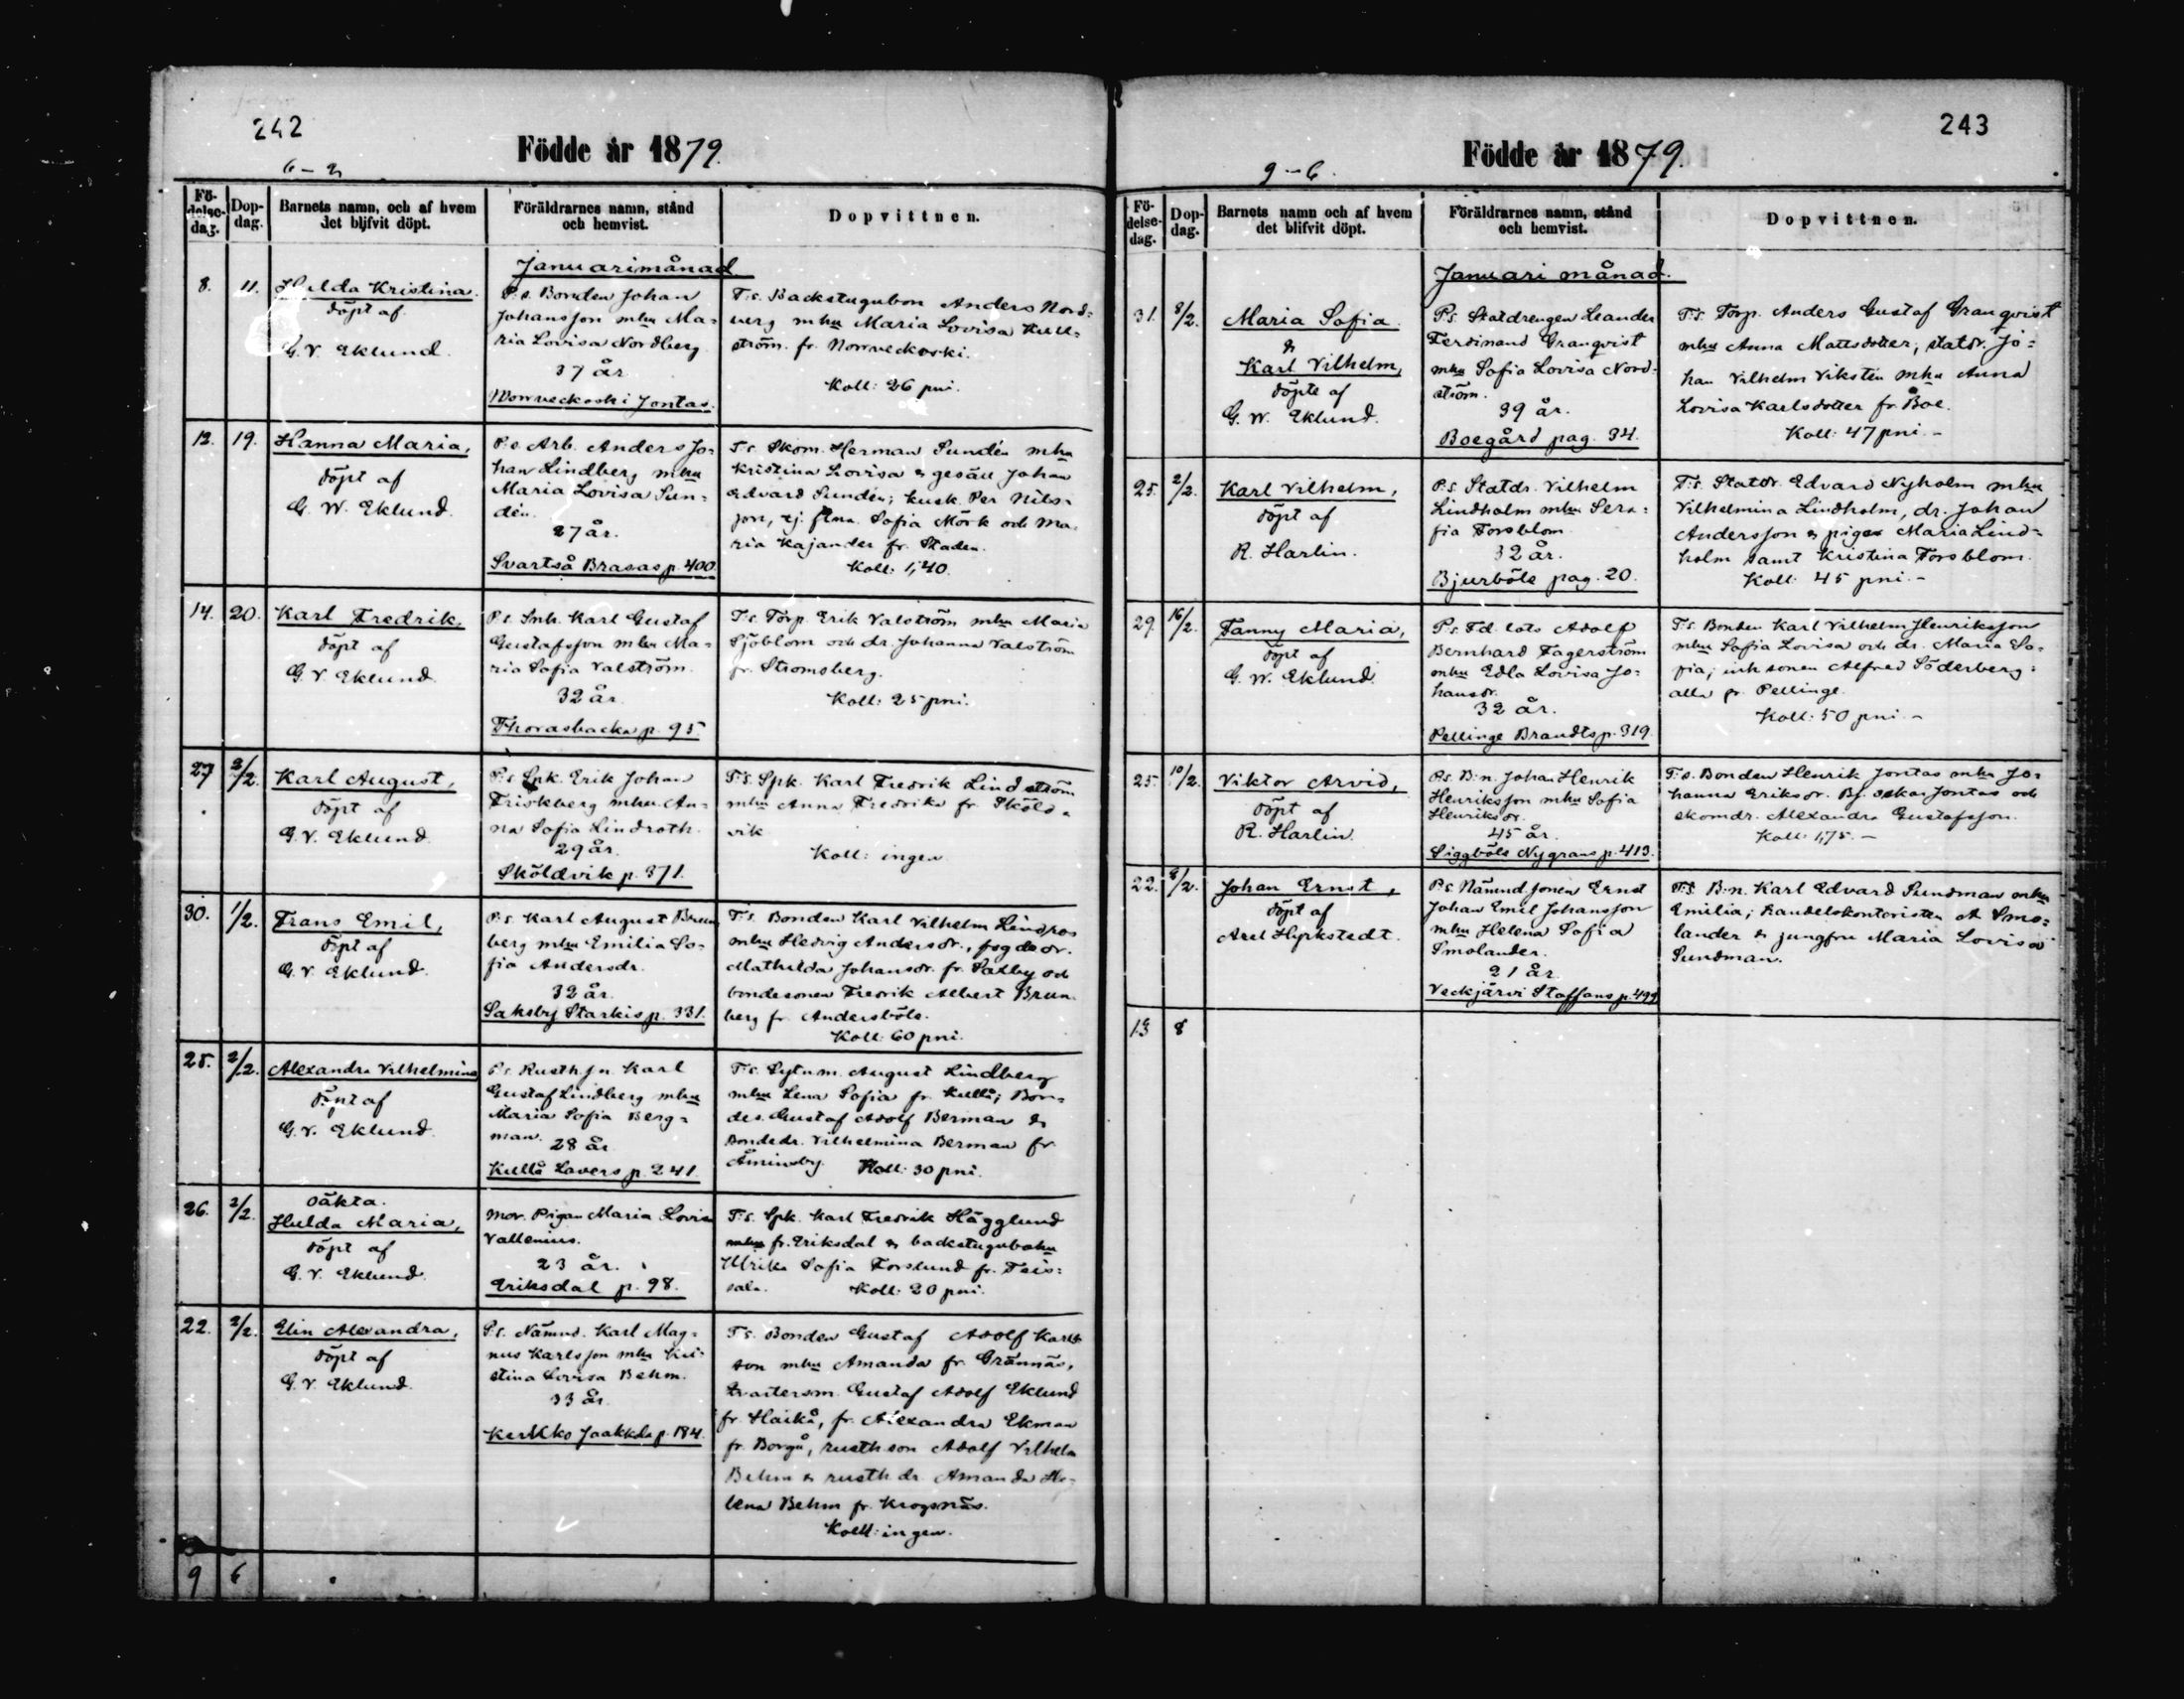 242
Födde år 1879.
6-2
Födelsedag.
Dopdag.
Barnets namn, och af hvem
det blifvit döpt.
Föräldrarnes namn, stånd
och hemvist.
Dopvittnen.
Januarimånad
8.
11.
Hulda Kristina.
döpt af
G. V. Eklund.
P.s. Bonden Johan
Johansson mhu Ma-
ria Lovisa Nordberg
37 år
Norrveckoski Jontas.
T.s. Backstugubon Anders Nord-
berg mhu Maria Lovisa
ström. fr. Norrveckoski.
Koll: 26 pni.
12.
19.
Hanna Maria,
döpt af
G. W. Eklund.
P.s. Arb. Anders Jo-
han Lindberg mhu
Maria Lovisa Sun-
dén.
27 år.
Svartså Brasas p. 400.
T.s. Skom. Herman Sundén mhu
Kristina Lovisa & gesäll Johan
Edvard Sundén; kusk Per Nils-
son, tj. fina Sofia Mörk och Ma-
ria Kajander fr. Staden.
Koll: 1,40.
14.
20.
Karl Fredrik,
döpt af
G. V. Eklund
P.s. Inh. Karl Gustaf
Gustafsson mhu Ma-
ria Sofia Valström.
32 år.
Thorasbacka p. 95
T.s. Torp. Erik Valström mhu Maria
Sjöblom och dr. Johanna Valström
fr. Stromsberg.
Koll: 25 pni.
27
2/2.
Karl August,
döpt af
G. V. Eklund
P.s. Spk. Erik Johan
Friskberg mhu An-
na Sofia Lindroth.
29 år.
Sköldvik p. 371.
T.s. Spk. Karl Fredrik Lindström
mhu Anna Fredrika fr. Sköld-
vik
Koll: ingen
30.
1/2.
Frans Emil,
döpt af
G. V. Eklund.
P.s. Karl August Brun
berg mhu Emilia So-
fia Andersdr.
32 år.
Saksby Starkis p. 331.
T.s. Bonden Karl Vilhelm Lindfors
mhu Hedvig Andersdr.,
Mathilda Johansdr. fr. Saxby och
bondesonen Fredrik Albert Brun-
berg fr. Andersböle.
Koll: 60 pni.
28.
2/2.
Alexandra Vilhelmina
döpt af
G. V. Eklund.
P.s. Rusth.sn. Karl
Gustaf Lindberg mhu
Maria Sofia Berg-
man.
28 år
Kullå Lavers p. 241.
T.s. Sytnm. August Lindberg
mhu Lena Sofia fr. Kullå; Bon-
des. Gustaf Adolf Berman &
Bondedr. Vilhelmina Berman fr.
Åminsby. Koll: 30 pni.
26.
2/2.
oäkta.
Hulda Maria,
döpt af
G. V. Eklund.
Mor. Pigan Maria Lovisa
Vallenius.
23 år.
Eriksdal p. 98.
T.s. Spk. Karl Fredrik Hägglund
mhu fr. Eriksdal & backstugubohu
Ulrika Sofia Forslund fr. Teis-
sala. Koll: 20 pni.
22.
2/2.
Elin Alexandra,
döpt af
G. V. Eklund.
P.s. Nämnd. Karl Mag-
nus Karlsson mhu Kri-
stina Lovisa Behm.
33 år
Kerkko Jaakkola p. 184.
T.s. Bonden Gustaf Adolf Karls-
son mhu Amanda fr. Grännäs,
kvartersm. Gustaf Adolf Eklund
fr. Haikå, fr. Alexandra Ekman
fr. Borgå, rusthson Adolf Vilhelm
Behm & rusthdr. Amanda He-
lena Behm fr. Krogsnäs.
Koll: ingen.
9
6
243
Födde år 1879.
9-6.
Födelsedag.
Dopdag.
Barnets namn och af hvem
det blifvit döpt.
Föräldrarnes namn, stånd
och hemvist.
Dopvittnen.
Januari månad.
31.
8/2.
Maria Sofia.
&
Karl Vilhelm,
döpte af
G. W. Eklund.
P.s. Statdrengen Leander
Ferdinand Granqvist
mhu Sofia Lovisa Nord-
ström.
39 år.
Boegård pag. 34.
T.s. Torp. Anders Gustaf Granqvist
mhu Anna Mattsdotter, statdr. Jo-
han Vilhelm Vikstén mhu Anna
Lovisa Karlsdotter fr. Boe.
Koll: 47 pni.-
25.
2/2.
Karl Vilhelm,
döpt af
R. Harlin.
P.s. Statdr. Vilhelm
Lindholm mhu Sera-
fia Forsblom
32 år.
Bjurböle pag. 20.
T.s. Statdr. Edvard Nyholm mhu
Vilhelmina Lindholm, dr. Johan
Andersson & pigor Maria Lind-
holm samt Kristina Forsblom.
Koll: 45 pni.-
29.
16/2.
Fanny Maria,
döpt af
G. W. Eklund.
P.s. F.d. lots Adolf
Bernhard Fagerström
mhu Edla Lovisa Jo-
hansdr.
32 år.
Pellinge Brandts p. 319.
T.s. Bonden Karl Vilhelm Henriksson
mhu Sofia Lovisa och dr. Maria So-
fia; inh sonen Alfred Söderberg:
alla fr. Pellinge.
Koll: 50 pni.-
25.
10/2.
Viktor Arvid,
döpt af
R. Harlin.
P.s. B:n. Johan Henrik
Henriksson mhu Sofia
Henriksdr.
45 år.
Siggböle Nygrans p. 413.
T.s. Bonden Henrik Jontas mhu Jo-
hanna Eriksdr. Bs. Oskar Jontas och
skomdr. Alexandra Gustafsson.
Koll: 1,75.-
22.
8/2.
Johan Ernst,
döpt af
Axel Hyrkstedt.
P.s. Nämndsonen Ernst
Johan Emil Johansson
mhu Helena Sofia
Smolander.
21 år.
Veckjärvi Staffans p. 499
T.s. B:n. Karl Edvard Sundman mhu
Emilia; handelskontoristen A Smo-
lander & jungfru Maria Lovisa
Sundman.
13
8